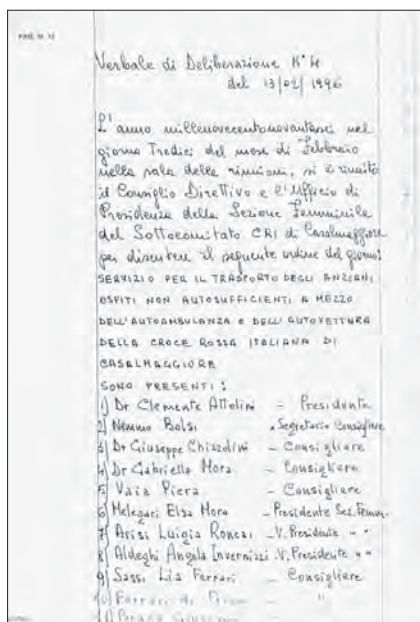 PAG. N. 12
Verbale di Deliberazione N° 4
del 13/02/1996
L'anno millenovecentonovantasei nel
giorno Tredici del mese di Febbraio
nella sala delle riunioni, si è riunito
il Consiglio Direttivo e l'Ufficio di
Presidenza della Sezione Femminile
del Sottocomitato CRI di Casalmaggiore
per discutere il seguente ordine del giorno:
SERVIZIO PER IL TRASPORTO DEGLI ANZIANI
OSPITI NON AUTOSUFFICIENTI A MEZZO
DELL'AUTOAMBULANZA O DELL'AUTOVETTURA
DELLA CROCE ROSSA ITALIANA DI
CASALMAGGIORE
SONO PRESENTI:
1) Dr Clemente Attolini - Presidente
2) Nemmo Balsi - Segretario Consigliere
3) Dr Giuseppe Chizzolini - Consigliere
4) Dr Gabriella Mora - Consigliere
5) Vaia Piera - Consigliere
6) Melegari Elsa Mora - Presidente Sez. Femm.
7) Arisi Luigia Roncai - V. Presidente " "
8) Aldeghi Angela Invernizzi - V. Presidente " "
9) Sassi Lia Ferrari - Consigliere
10) Ferrari di "
11)